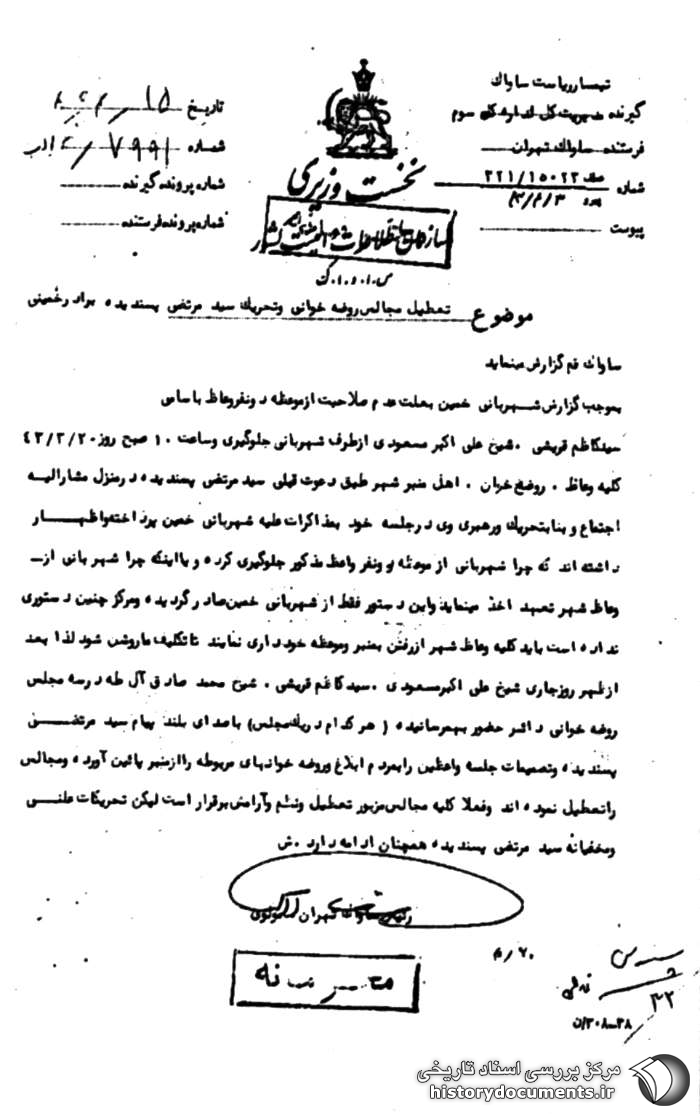 تیمسار ریاست ساواك
گیرنده مدیریت کل اداره کل سوم
فرستنده ساواك تهران
شماره ۲۲۱/۱۵۰۲۲
پیوست
تاریخ
شماره ۷۹۹۱
شماره پرونده گیرنده
شماره پرونده فرستنده
نخست وزیری
سازمان اطلاعات و امنیت کشور
س.ا.و.ا.ك
موضوع تعطیل مجالس روضه خوانی و تحریك سید مرتضی پسندیده برادر خمینی
ساواك قم گزارش مینماید
بموجب گزارش شهربانی خمین بعلت عدم صلاحیت از موعظه دو نفر وعاظ باسامی
سید کاظم قریشی . شیخ علی اکبر مسعودی از طرف شهربانی جلوگیری و ساعت ۱۰ صبح روز ۴۲/۳/۲۰
کلیه وعاظ . روضه خوان . اهل منبر شهر طبق دعوت قبلی سید مرتضی پسندیده در منزل مشارالیه
اجتماع و بنا بتحریك و رهبری وی در جلسه خود بمذاکرات علیه شهربانی خمین پرداخته و اظهار
داشته اند که چرا شهربانی از موعظه دو نفر واعظ مذکور جلوگیری کرده و یا اینکه چرا شهربانی از
وعاظ شهر تعهد اخذ مینماید و این دستور فقط از شهربانی خمین صادر گردیده و مرکز چنین دستوری
نداده است باید کلیه وعاظ شهر از رفتن بمنبر و موعظه خودداری نمایند تا تکلیف ما روشن شود لذا بعد
از ظهر روز جاری شیخ علی اکبر مسعودی . سید کاظم قریشی . شیخ محمد صادق آل طه در سه مجلس
روضه خوانی دائر حضور بهمرسانیده ( هر کدام در یك مجلس ) با صدای بلند پیام سید مرتضی
پسندیده و تصمیمات جلسه واعظین را بمردم ابلاغ و روضه خوانهای مربوطه را از منبر پائین آورده و مجالس
را تعطیل نموده اند و فعلا کلیه مجالس مزبور تعطیل و نظم و آرامش برقرار است لیکن تحریکات علنی
و مخفیانه سید مرتضی پسندیده همچنان ادامه دارد . ش
ساواك تهران مولوی
محرمانه
۳۲
۳۰۸-۳۸/ن
مرکز بررسی اسناد تاریخی
historydocuments.ir